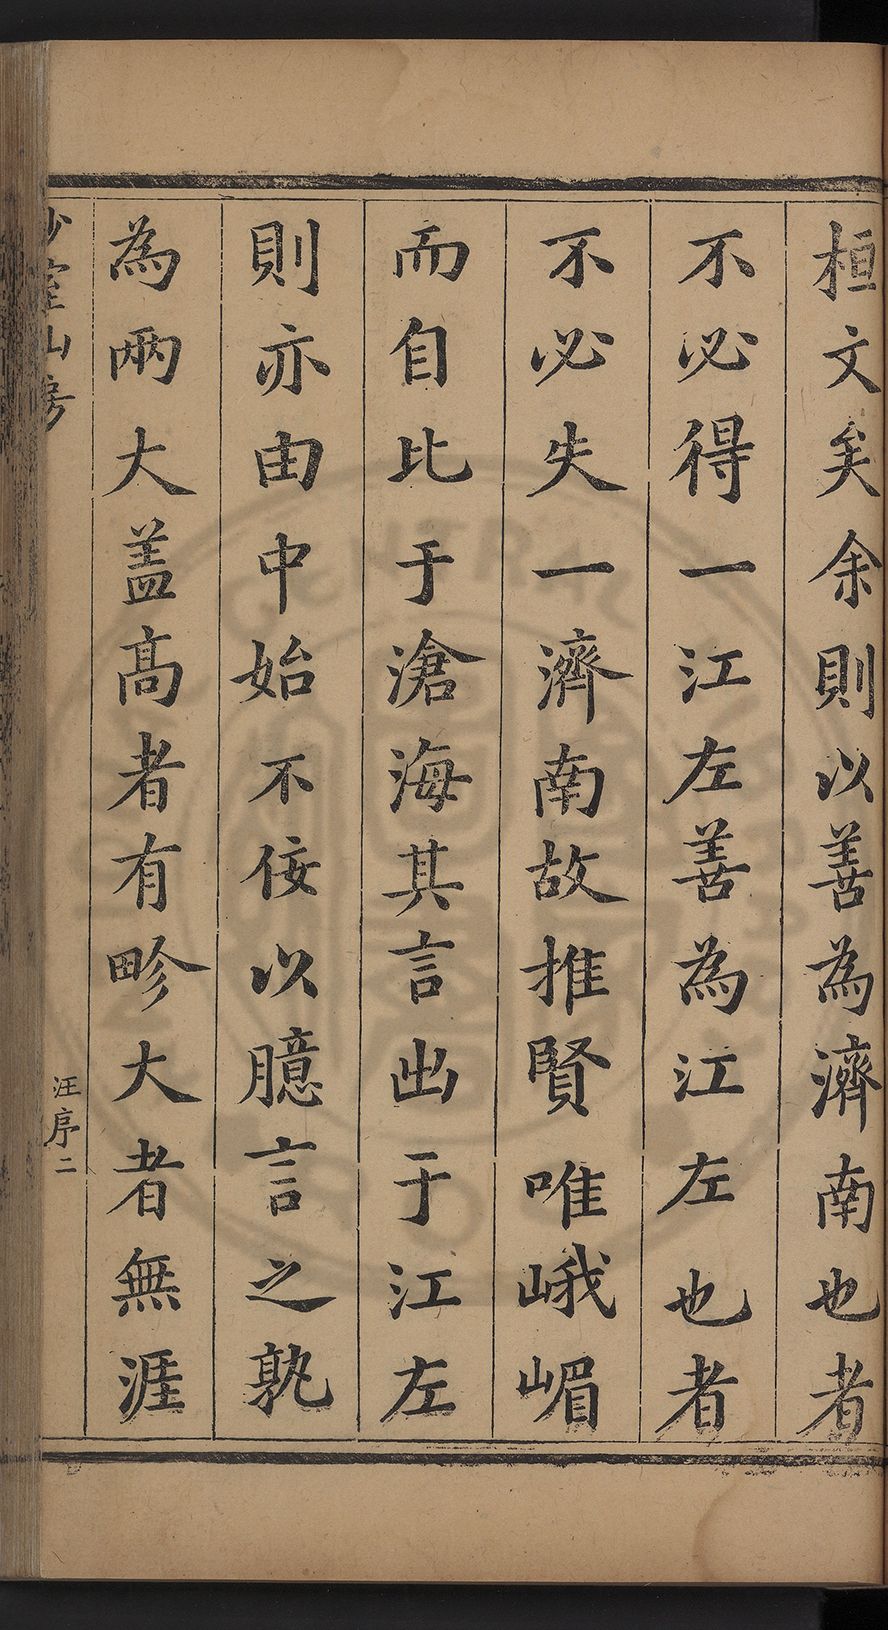 桓文矣余則以善為濟南也者
不必得一江左善為江左也者
不必失一濟南故推賢唯峨嵋
而自比于滄海其言出于江左
則亦由中始不佞以臆言之孰
為兩大盖高者有畛大者無涯
少室山房
汪序二